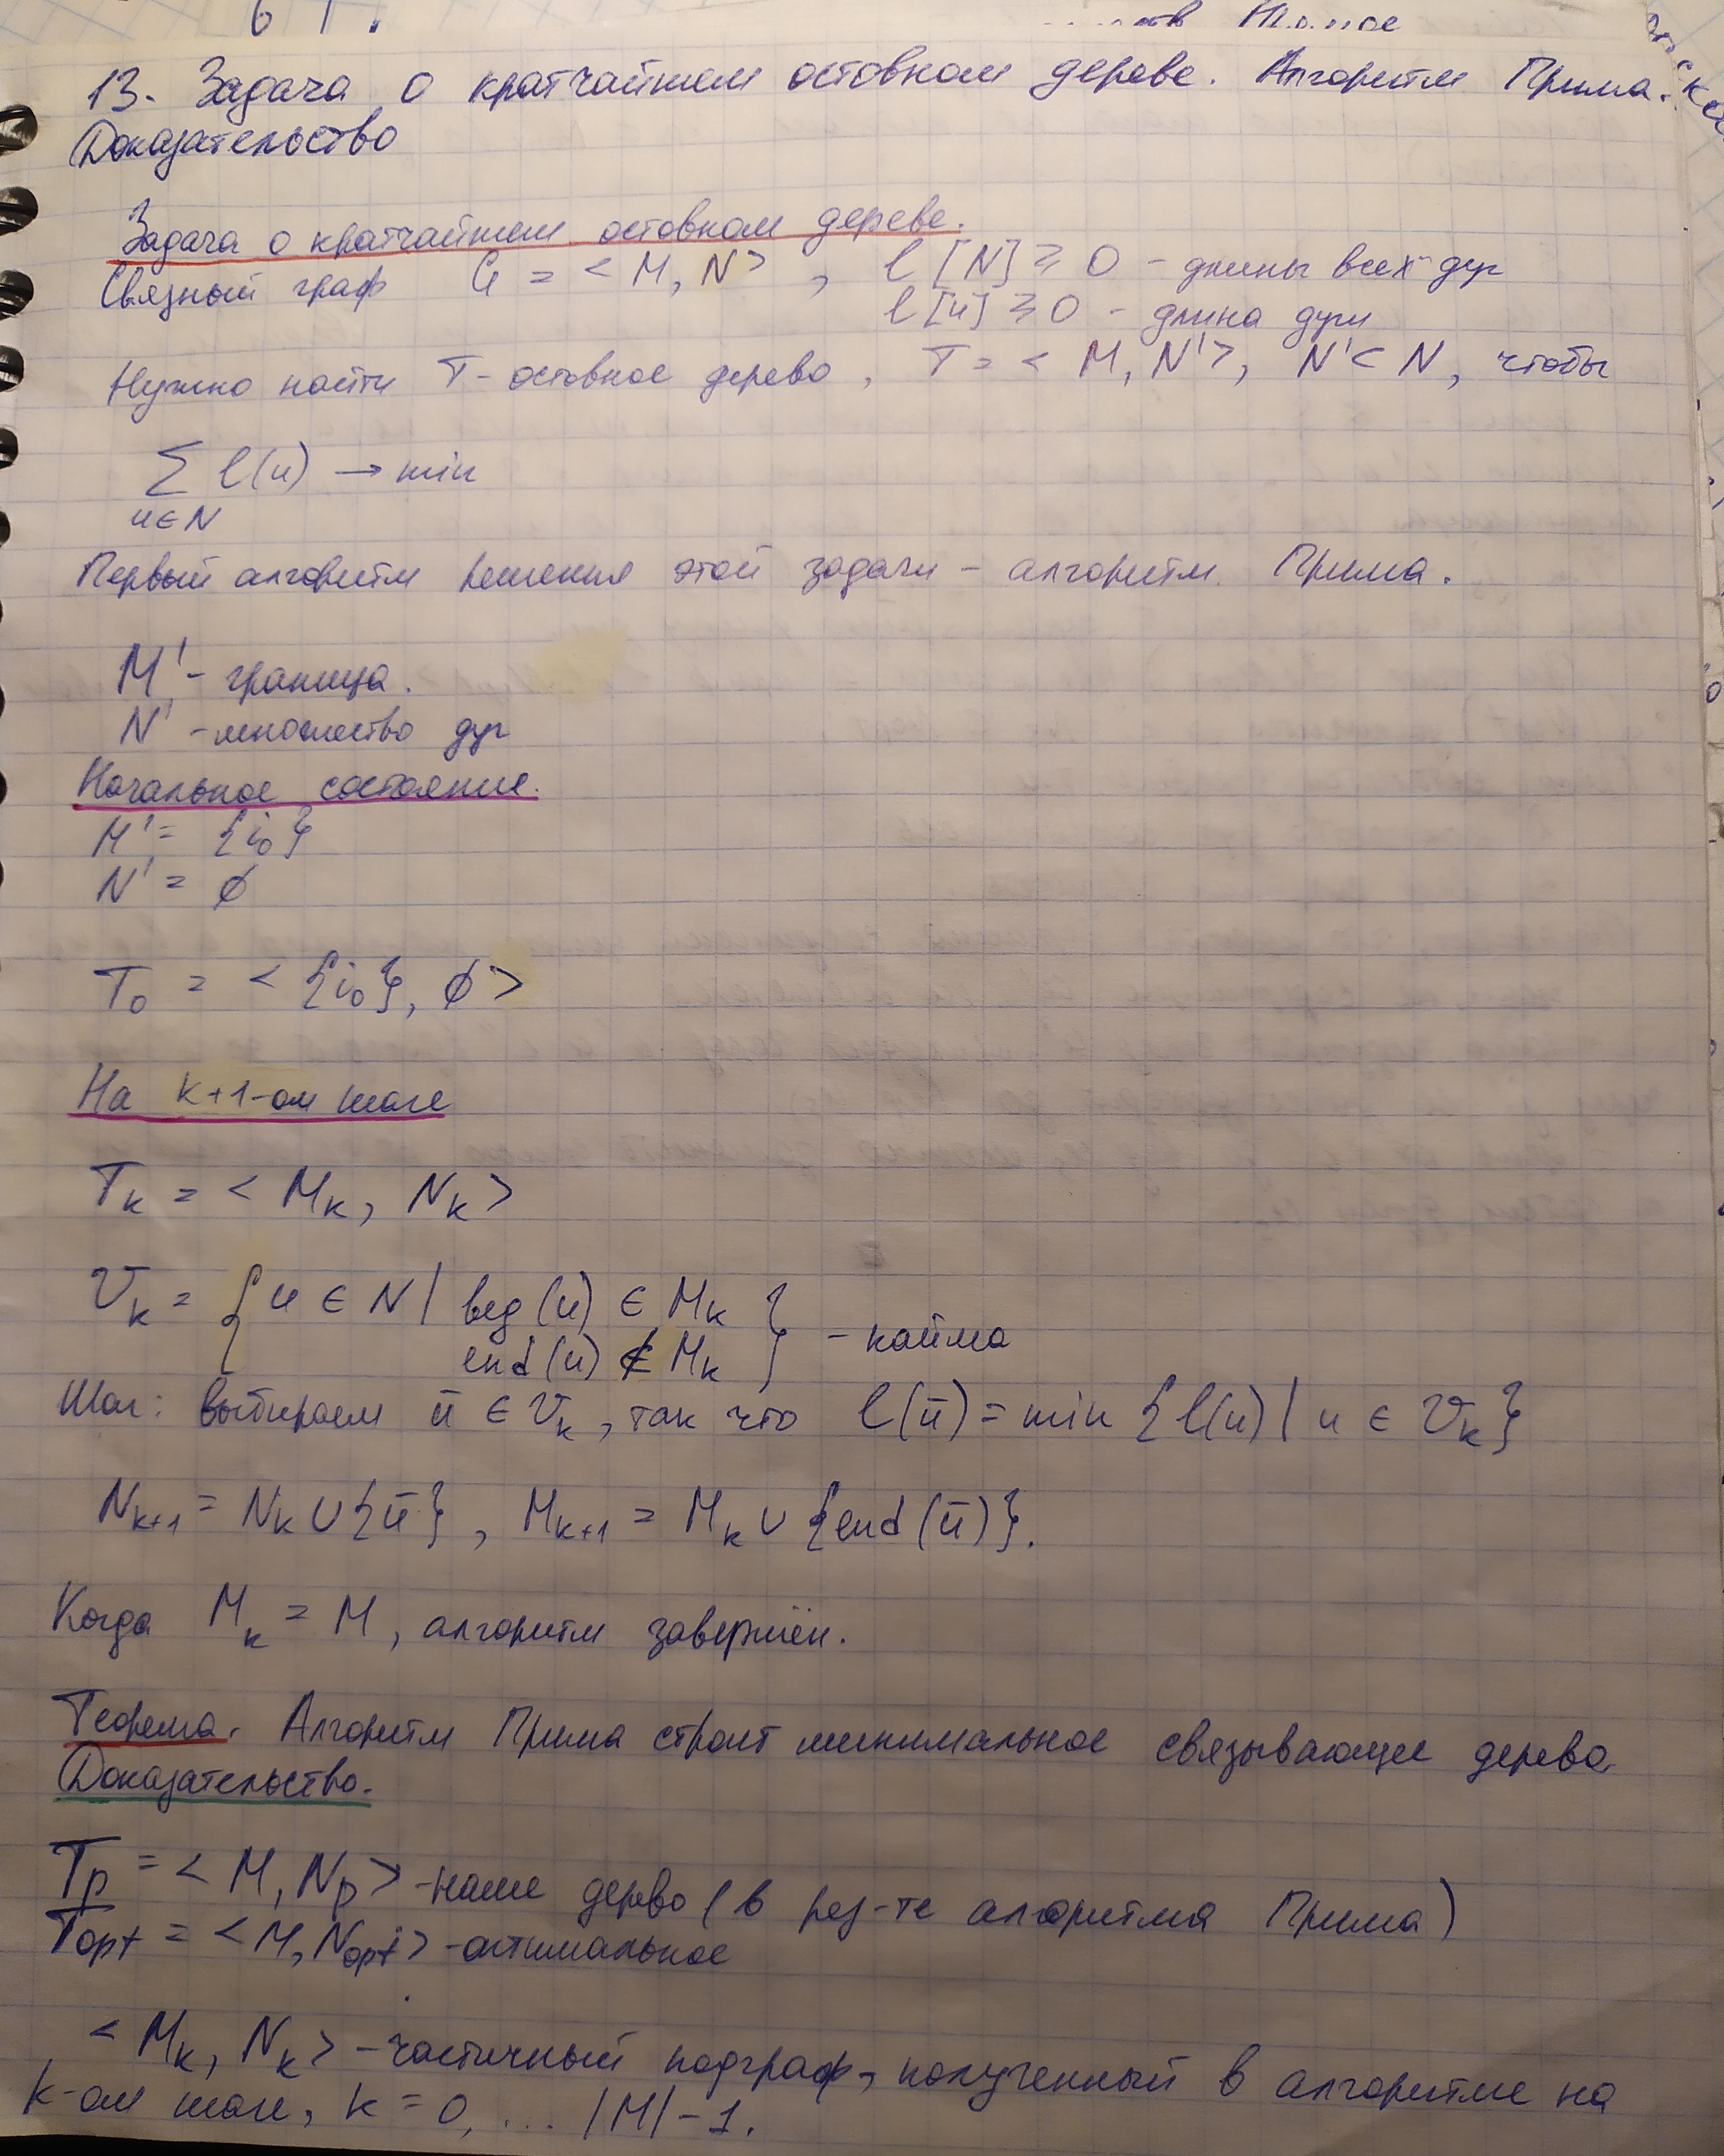 13. Задача о кратчайшем остовном дереве. Алгоритм Прима.
Доказательство
Задача о кратчайшем остовном дереве.
Связный граф G = < M, N > , l [N] ≥ 0 - длины всех дуг
l [u] ≥ 0 - длина дуги
Нужно найти T - остовное дерево , T = < M, N' >, N' ⊂ N, чтобы
∑ l(u) → min
u ∈ N
Первый алгоритм решения этой задачи - алгоритм Прима.
M' - граница.
N' - множество дуг
Начальное состояние.
M' = {i₀}
N' = ∅
T₀ = < {i₀}, ∅ >
На k+1-ом шаге
Tₖ = < Mₖ, Nₖ >
Vₖ = { u ∈ N | beg(u) ∈ Mₖ
end(u) ∉ Mₖ } - кайма
Шаг: выбираем ū ∈ Vₖ, так что l(ū) = min {l(u) | u ∈ Vₖ}
Nₖ₊₁ = Nₖ ∪ {ū} , Mₖ₊₁ = Mₖ ∪ {end(ū)}.
Когда Mₖ = M, алгоритм завершён.
Теорема. Алгоритм Прима строит минимальное связывающее дерево
Доказательство.
Tₚ = < M, Nₚ > - наше дерево (в рез-те алгоритма Прима)
Topt = < M, Nopt > - оптимальное
< Mₖ, Nₖ > - частичный подграф, полученный в алгоритме на
k-ом шаге, k = 0, ... |M| - 1.